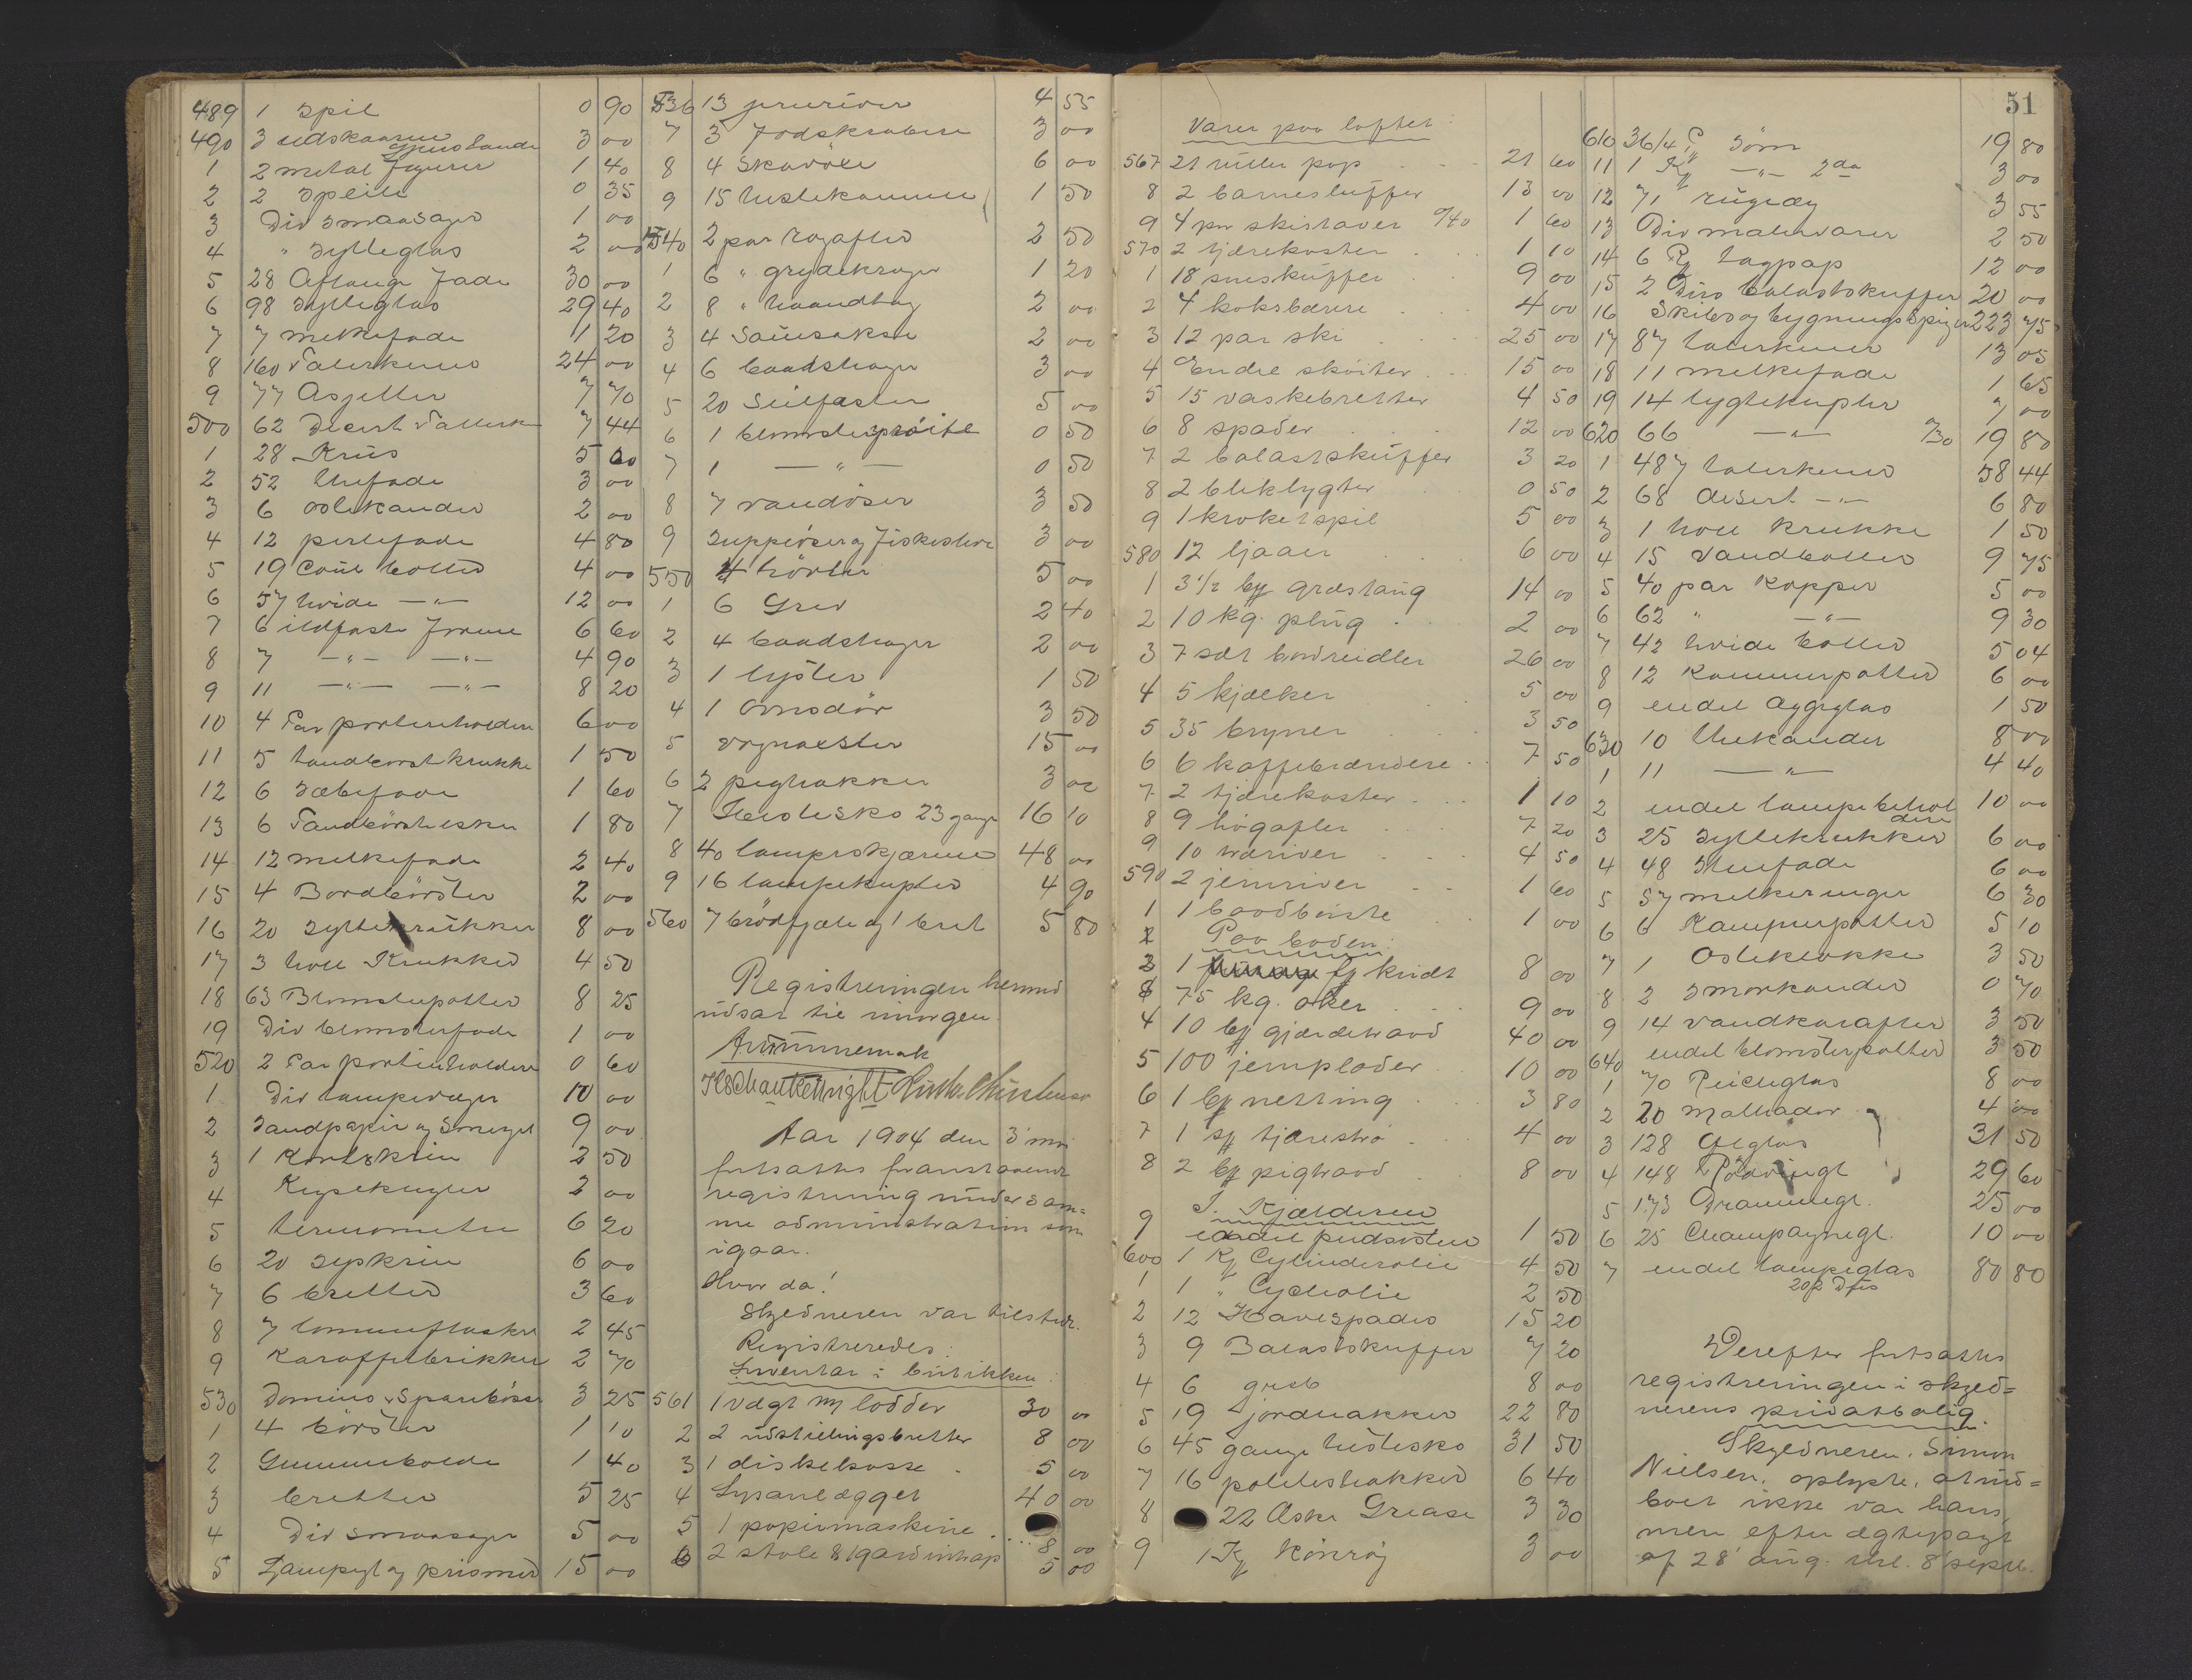 489 1 Spil 0 90
490 3 udskaarne 3 00
1 2 metal figurer 1 40
2 2 Speile 0 35
3 Div smaasager 1 00
4 " Sylteglas 2 00
5 28 Aflange Fade 30 00
6 98 Sylteglas 29 40
7 7 melkefade 1 20
8 160 Talerkener 24 00
9 77 Asjetter 7 70
500 62 Desert Tallerk 7 44
1 28 Krus 5 60
2 52 thefade 3 00
3 6 kander 2 00
4 12 fade 4 80
5 19 boller 4 00
6 57 hvide —"— 12 00
7 6 ildfaste Forme 6 60
8 7 —"— —"— 4 90
9 11 —"— —"— 8 20
10 4 Par portierholdere 6 00
11 5 tandbørstkrukke 1 50
12 6 Sæbefade 1 60
13 6 Tandbørstesker 1 80
14 12 melkefade 2 40
15 4 Bordbörster 2 00
16 20 Syltekrukker 8 00
17 3 holl Krukker 4 50
18 63 Blomsterpotter 8 25
19 Div blomsterfade 1 00
520 2 Par portierholdere 0 60
1 Div lampevæger 10 00
2 Sandpapir og Smergel 9 00
3 1 2 50
4 Keglekugler 2 00
5 termometre 6 20
6 20 Sypskrin 6 00
7 6 bretter 3 60
8 7 lommeflasker 2 45
9 Karaffelbrikker 2 70
530 Domino & Sparebösser 3 25
1 4 börster 1 10
2 Gummibolde 1 40
3 bretter 5 25
4 Div smaasager 5 00
5 Lampegl og prismer 15 00
536 13 4 55
7 3 Fodskrabere 3 00
8 4 Skavöle 6 00
9 15 hestekamme 1 50
540 2 par 2 50
1 6 " grydekroger 1 20
2 8 " haandtag 2 00
3 4 Sauesakse 2 00
4 6 baadshager 3 00
5 20 5 00
6 1 blomstersprøite 0 50
7 1 —"— 0 50
8 7 vandöser 3 50
9 Suppeöser og Fiskeslever 3 00
550 4 5 00
1 6 Grev 2 40
2 4 baadshager 2 00
3 1 lyster 1 50
4 1 Ovnsdör 3 50
5 vognaxler 15 00
6 2 pighakker 3 00
7 Hestesko 23 gange 16 10
8 40 lampeskjærme 48 00
9 16 lampekupler 4 90
560 7 brödfjæle og 1 bret 5 80
Registreringen herved
udsat til imorgen.
Aar 1904 den 3 mai
fortsattes foranstaaende
registrering under sam=
me administration som
igaar.
Hvor da!
Skyldneren var tilstede.
Registreredes:
Inventar i butikken:
561 1 vægt m lodder 30 00
2 2 udstillingsbretter 8 00
3 1 diskekasse 5 00
4 Lysanlægget 40 00
5 1 papirmaskine 8 00
6 2 stole & 1 gardintrap 5 00
51
Varer paa loftet:
567 21 ruller pap 21 60
8 2 barnesluffer 13 00
9 4 par skistaver 0/40 1 60
570 2 tjærekoster 1 10
1 18 sneskuffer 9 00
2 4 koksbærere 4 00
3 12 par ski 25 00
4 Endel skøiter 15 00
5 15 vaskebretter 4 50
6 8 spader 12 00
7 2 balastskuffer 3 20
8 2 bliklygter 0 50
9 1 kroketspil 5 00
580 12 ljaaer 6 00
1 3 1/2 bg græstaug 14 00
2 10 kg. plüg 2 00
3 7 sæt 26 00
4 5 kjælker 5 00
5 35 bryner 3 50
6 6 kaffebrændere 7 50
7 2 tjærekoster 1 10
8 9 høgafler 7 20
9 10 træriver 4 50
590 2 jernriver 1 60
1 1 1 00
Paa boden:
2 1 fj kridt 8 00
3 75 kg. oker 9 00
4 10 bg gjærdetraad 40 00
5 100 jernplader 10 00
6 1 bg netting 3 80
7 1 sg 4 00
8 2 bg pigtraad 8 00
I Kjælderen
9 endel pudssten 1 50
600 1 Kg Cylinderolie 4 50
1 1 " Cycleolie 2 50
2 12 Havespader 15 20
3 9 Balastskuffer 7 20
4 6 greb 8 00
5 19 jordhakker 22 80
6 45 gange hestesko 31 50
7 16 poteteshakker 6 40
8 22 Æsker Grease 3 30
9 1 Kg Kønrøg 3 00
610 36/4 Pg Söm 19 80
11 1 Kg —"— 2da 3 00
12 71 3 55
13 Div malervarer 2 50
14 6 Rg tagpap 12 00
15 2 Dus balastskuffer 20 00
16 Skibs og bygnings Spiger 223 75
17 87 talerkener 13 05
18 11 melkefade 1 65
19 14 lygtekupler 7 00
620 66 —"— 19 80
1 487 talerkener 58 44
2 68 desert —"— 6 80
3 1 holl krukke 1 50
4 15 Vandboller 9 75
5 40 par Kopper 5 00
6 62 " —"— 9 30
7 42 hvide boller 5 04
8 12 Kammerpotter 6 00
9 endel æggeglas 1 50
630 10 thekander 8 00
1 11 —"— 4 40
2 endel lampebehol
dere 10 00
3 25 Syltekrukker 6 00
4 48 6 00
5 57 melkeringer 6 30
6 6 Kammerpotter 5 10
7 1 Osteklokke 3 50
8 2 Smørkander 0 70
9 14 Vandkarafler 3 50
640 endel blomsterpotter 3 50
1 70 8 00
2 20 4 00
3 128 Ølglas 31 50
4 148 29 60
5 173 Drammegl. 25 00
6 25 Champagnegl. 10 00
7 endel lampeglas 80 80
202 Dus
Derefter fortsattes
registreringen i skyld=
nerens privatbolig.
Skyldneren, Simon
Nielsen, oplyste, at ind=
boet ikke var hans,
men efter ægtepagt
af 28 aug. thl. 8 septb.